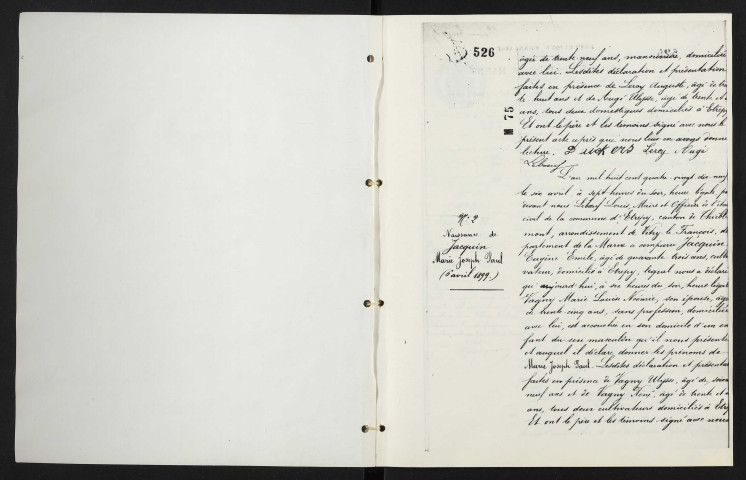 526
âgée de trente neuf ans, manouvrière, domiciliée
avec lui. Lesdites déclaration et présentation
faites en présence de Leroy Auguste, âgé de
te huit ans et de Augé Ulysse, âgé de trente
ans, tous deux domestiques domiciliés à Etrepy
Et ont le père et les témoins signé avec nous le
présent acte après que nous leur en avons donné
lecture. Leroy Augé
Leboeuf
M 75
N° 2
Naissance de
Jacquin
Marie Joseph Paul
(6 avril 1899.)
L'an mil huit cent quatre-vingt dix-neuf
le six avril à sept heures du soir, heure légale, 
devant nous Leboeuf Louis, Maire et Officier de l'état
civil de la commune d'Etrepy, canton de Thiéble
mont, arrondissement de Vitry le François, dé
partement de la Marne a comparu Jacquin
Eugène Emile, âgé de quarante trois ans, culti
vateur, domicilié à Etrepy, lequel nous a déclaré
qu'aujourd'hui, à six heures du soir, heure légale
Vagny Marie Louise Noémie, son épouse, âgée
de trente cinq ans, sans profession, domiciliée
avec lui, est accouchée en son domicile d'un en
fant du sexe masculin qu'il nous présente
et auquel il déclare donner les prénoms de
Marie Joseph Paul. Lesdites déclaration et présentation
faites en présence de Vagny Ulysse, âgé de
neuf ans et de Vagny âgé de trente
ans, tous deux cultivateurs domiciliés à Etrepy
Et ont le père et les témoins signé avec nous